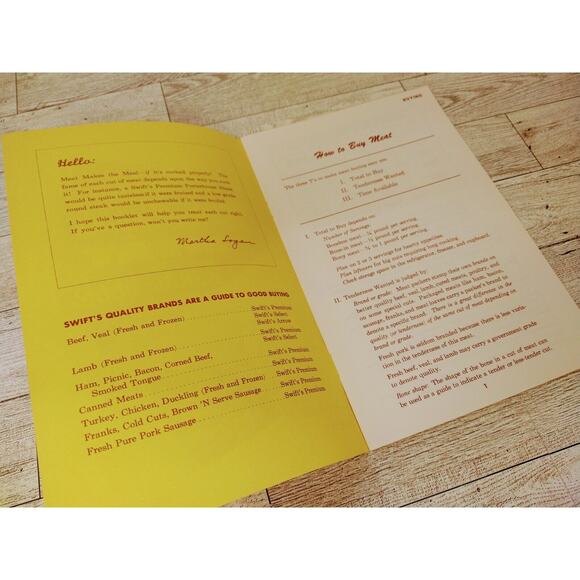 Hello:
Meat Makes the Meal—if it's cooked properly! The
fame of each cut of meat depends upon the way you cook
it! For instance, a Swift's Premium Porterhouse Steak
would be quite tasteless if it were boiled and a low grade
round steak would be unchewable if it were broiled.
I hope this booklet will help you treat each cut right.
If you've a question, won't you write me?
Martha Logan
SWIFT'S QUALITY BRANDS ARE A GUIDE TO GOOD BUYING
Beef, Veal (Fresh and Frozen) Swift's Premium
Swift's Select
Swift's Arrow
Lamb (Fresh and Frozen) Swift's Premium
Swift's Select
Ham, Picnic, Bacon, Corned Beef,
Smoked Tongue Swift's Premium
Canned Meats Swift's Premium
Turkey, Chicken, Duckling (Fresh and Frozen) Swift's Premium
Franks, Cold Cuts, Brown 'N Serve Sausage Swift's Premium
Fresh Pure Pork Sausage Swift's Premium
BUYING
How to Buy Meat
The three T's to make meat buying easy are:
I. Total to Buy
II. Tenderness Wanted
III. Time Available
I. Total to Buy depends on:
Number of Servings.
Boneless meat—¼ pound per serving.
Bone-in meat—⅓ pound per serving.
Bony meat—¾ to 1 pound per serving.
Plan on 2 or 3 servings for hearty appetites.
Plan leftovers for big cuts requiring long cooking.
Check storage space in the refrigerator, freezer, and cupboard.
II. Tenderness Wanted is judged by:
Brand or grade: Meat packers stamp their own brands on
better quality beef, veal, lamb, cured meats, poultry, and
on some special cuts. Packaged meats like ham, bacon,
sausage, franks, and meat loaves carry a packer's brand to
denote a specific brand. There is a great difference in the
quality or tenderness, of the same cut of meat depending on
brand or grade.
Fresh pork is seldom branded because there is less varia-
tion in the tenderness of this meat.
Fresh beef, veal, and lamb may carry a government grade
to denote quality.
Bone shape: The shape of the bone in a cut of meat can
be used as a guide to indicate a tender or less-tender cut.
1